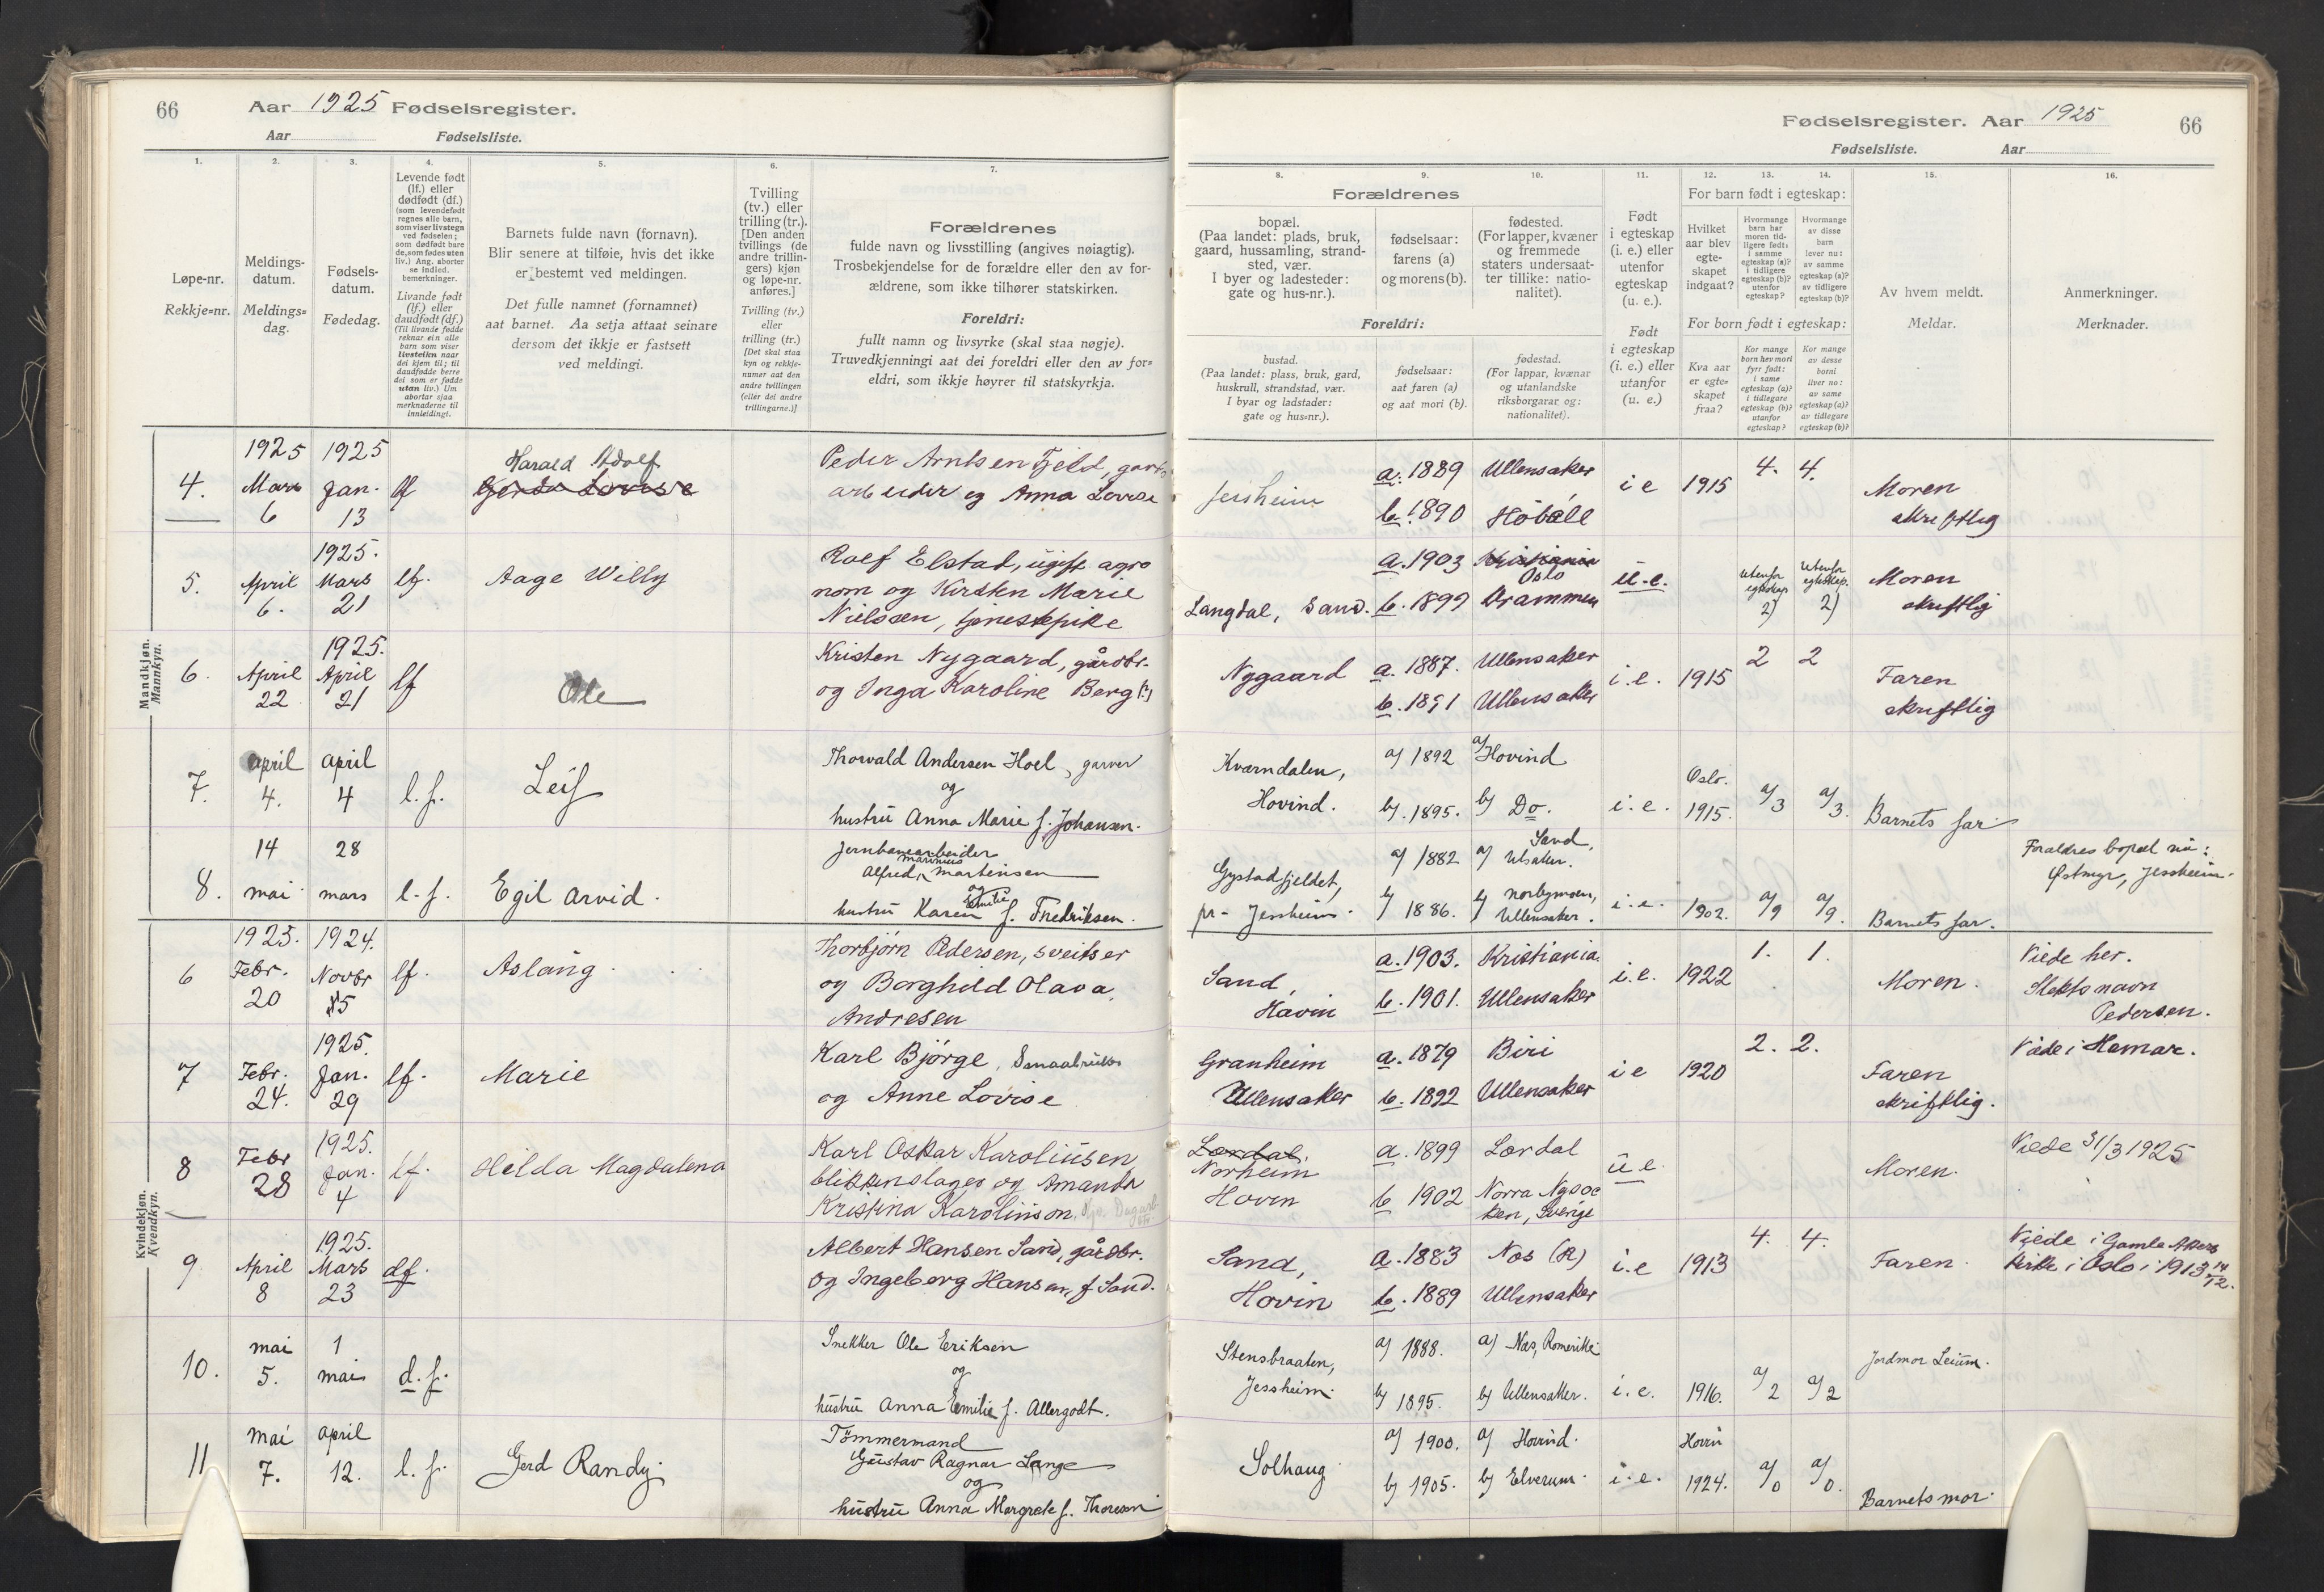 66 Aar 1925 Fødselsregister.
Aar Fødselsliste.
1. 2. 3. 4. 5. 6. 7.
Løpe-nr.
Rekkje=nr.
Meldings-
datum.
Meldings=
dag.
Fødsels-
datum.
Fødedag.
Levende født
(lf.) eller
dødfødt (df.)
(som levendefødt
regnes alle barn,
som viser livstegn
ved fødselen;
som dødfødt bare
de, som fødes uten
liv.) Ang. aborter
se indled.
bemerkninger.
Livande født
(lf.) eller
daudfødt (df.)
(Til livande fødde
reknar ein alle
barn som viser
livsteikn naar
dei kjem til; til
daudfødde berre
dei som er fødde
utan liv.) Um
abortar sjaa
merknaderne til
innleidingi.
Barnets fulde navn (fornavn).
Blir senere at tilføie, hvis det ikke
er bestemt ved meldingen.
Det fulle namnet (fornamnet)
aat barnet. Aa setja attaat seinare
dersom det ikkje er fastsett
ved meldingi.
Tvilling
(tv.) eller
trilling (tr.).
[Den anden
tvillings (de
andre trillin-
gers) kjøn
og løpe-nr.
anføres.]
Tvilling (tv.)
eller
trilling (tr.)
[Det skal staa
kyn og rekkje-
numer aat den
andre tvillingen
(eller dei andre
trillingarne.)]
Forældrenes
fulde navn og livsstilling (angives nøiagtig).
Trosbekjendelse for de forældre eller den av for-
ældrene, som ikke tilhører statskirken.
Foreldri:
fullt namn og livsyrke (skal staa nøgje).
Truvedkjenningi aat dei foreldri eller den av for=
eldri, som ikkje høyrer til statskyrkja.
Mandkjøn.
Mannkyn.
4. 1925 Mars 6 1925 Jan. 13 lf Harald Adolf
Gerda Lovise
Peder Arntsen Fjeld,
arbeider og Anna Lovise
5. April 6. 1925. Mars 21 lf. Aage Willy
Rolf Elstad, ugift agro
nom og Kirsten Marie
Nielsen, tjenestepike
6. April 22 1925. April 21 lf Ole
Kristen Nygaard, gårdbr.
og Inga Karoline Berg
7. april 4. april 4 l. f. Leif
Thorvald Andersen Hoel, garver
og
hustru Anna Marie f. Johansen.
8. 14 mai 28 mars l. f. Egil Arvid.
Jernbanearbeider
Alfred Marinius Martinsen
og
hustru Karen Emilie f. Fredriksen.
Kvindekjøn.
Kvendkyn.
6 1925. Febr. 20 1924. Novbr 15 lf. Aslaug
Thorbjørn Pedersen, sveitser
og Borghild Olava
Andresen
7 Febr. 24. 1925. Jan. 29 lf. Marie
Karl Bjørge, Smaabruker
og Anne Lovise
8 Febr 28 1925. Jan. 4 lf. Hilda Magdalena
Karl Oskar Karoliusen
blikkenslager og Amanda
Kristina Karolinson.
9. April 8 1925. Mars 23 df.
Albert Hansen Sand, gårdbr.
og Ingeborg Hansen, f Sand.
10. mai 5. 1 mai d. f.
Snekker Ole Eriksen
og
hustru Anna Emilie f. Allergodt.
11 mai 7. april 12. l. f. Gerd Randy.
Tømmermand
Gustav Ragnar Lange
og
hustru Anna Margrete f. Thoresen
Fødselsregister. Aar 1925 66
Fødselsliste. Aar
8. 9. 10. 11. 12. 13. 14. 15. 16.
Forældrenes
bopæl.
(Paa landet: plads, bruk,
gaard, hussamling, strand-
sted, vær.
I byer og ladesteder:
gate og hus-nr.).
fødselsaar:
farens (a)
og morens (b).
fødested.
(For lapper, kvæner
og fremmede
staters undersaat-
ter tillike: natio-
nalitet).
Foreldri:
bustad.
(Paa landet: plass, bruk, gard,
huskrull, strandstad, vær.
I byar og ladstader:
gate og hus=nr.).
fødselsaar:
aat faren (a)
og aat mori (b).
fødestad.
(For lappar, kvænar
og utanlandske
riksborgarar og:
nationalitet).
Født
i egteskap
(i. e.) eller
utenfor
egteskap
(u. e.).
Født
i egteskap
(i. e.) eller
utanfor
(u. e.)
For barn født i egteskap:
Hvilket
aar blev
egte-
skapet
indgaat?
Hvormange
barn har
moren tid-
ligere født:
i samme
egteskap (a)?
i tidligere
egteskap (b)?
utenfor
egteskap?
Hvormange
av disse
barn
lever nu:
av samme
egteskap (a)?
av tidligere
egteskap (b)?
For born født i egteskap:
Kva aar
er egte=
skapet
fraa?
Kor mange
born hev mori
fyrr født:
i same
egteskap (a)?
i tidlegare
egteskap (b)?
utanfor
egteskap?
Kor mange
av desse
borni
liver no:
av same
egteskap (a)?
av tidlegare
egteskap (b)?
Av hvem meldt.
Meldar.
Anmerkninger.
Merknader.
Jessheim a. 1889 Ullensaker i e 1915 4. 4. Moren
b. 1890 Hobøl skriftlig
Langdal, Sand. a. 1903 Kristiania Oslo u.e. Utenfor egteskap 2) Utenfor egteskap. 2) Moren
b. 1899 Drammen skriftlig
Nygaard a. 1887. Ullensaker i.e. 1915 2 2 Faren
b. 1891 Ullensaker skriftlig
Kværndalen, a) 1892 a) Hovind Oslo.
Hovind. b). 1895. b) Do. i. e. 1915. a) 3 a) 3. Barnets far
Gystadfjeldet, a) 1882 a) Sand, Ulsaker. Forældres bopæl nu:
Østmyr, Jessheim.
pr. Jessheim. b) 1886. b) Norbymoen, Ullensaker. i. e. 1902. a) 9 a) 9. Barnets far.
Sand, a. 1903. Kristiania. i.e. 1922 1. 1. Moren. Viede her.
Hovin b. 1901. Ullensaker Slektsnavn
Pedersen.
Granheim a. 1879 Biri i e 1920 2. 2. Faren Viede i Hamar.
Ullensaker b. 1892 Ullensaker skriftlig.
Lærdal. a. 1899 Lærdal u e. Moren. Viede 31/3 1925
Norheim
Hovin b 1902 Norra Ny
ken, Sverige
Sand, a. 1883 Nes (R) i.e 1913 4. 4. Faren. Viede i Gamle Akers
Hovin b. 1889 Ullensaker kirke i Oslo i 1913 14/12.
Stensbraaten, a) 1888. a) Næs, Romerike
Jessheim. b) 1895. b) Ullensaker. i. e. 1916. a) 2 a) 2 Jordmor Leium.
Solhaug a) 1900. a) Hovind. Hovin
b) 1905. b) Elverum. i. e. 1924. a) 0 a) 0. Barnets mor.